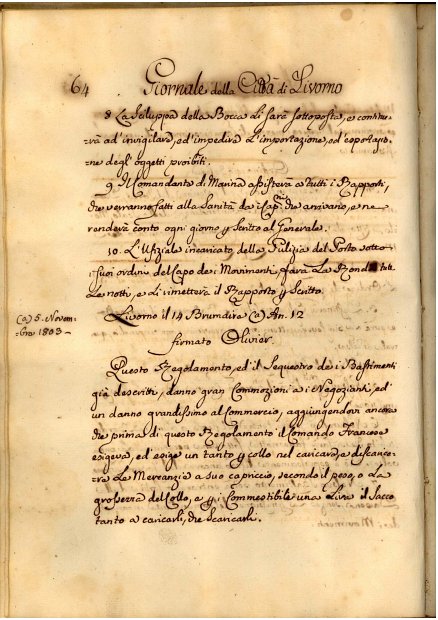 64 Giornale della Città di Livorno
8 La Sciluppa della Bocca li sarà sottoposta, e continu-
rà ad' invigilare, ed' impedire L'importazione, ed' esportazio-
ne degl' oggetti proibiti.
9 Il Comandante di Marina assisterà a tutti i Rapporti,
che verranno fatti alla Sanità da i Cap.ni che arrivano, e ne
renderà conto ogni giorno p Scritto al Generale.
10. L'Ufiziale incaricato della Pulizia del Porto sotto
i suoi ordini del Capo dei Movimenti, farà La Ronda tutte
Le notti, e Li rimetterà il Rapporto p Scritto.
Livorno il 14 Brumaire (a) An. 12
(a) 5. Novem-
bre 1803 -
firmato Olivier.
Questo Regolamento, ed il Sequestro dei Bastimenti
già descritti, danno gran Commozioni a i Negozianti, ed
un danno grandissimo al Commercio, aggiungendovi ancora
che prima di questo Regolamento il Comando Francese
esigeva, ed' esige un tanto p collo nel caricare, e discarica-
re Le Mercanzie a suo capriccio, secondo il peso, o La
grossezza del Collo, e p i Commestibile una Lira il Sacco
tanto a caricarli, che Scaricarli.